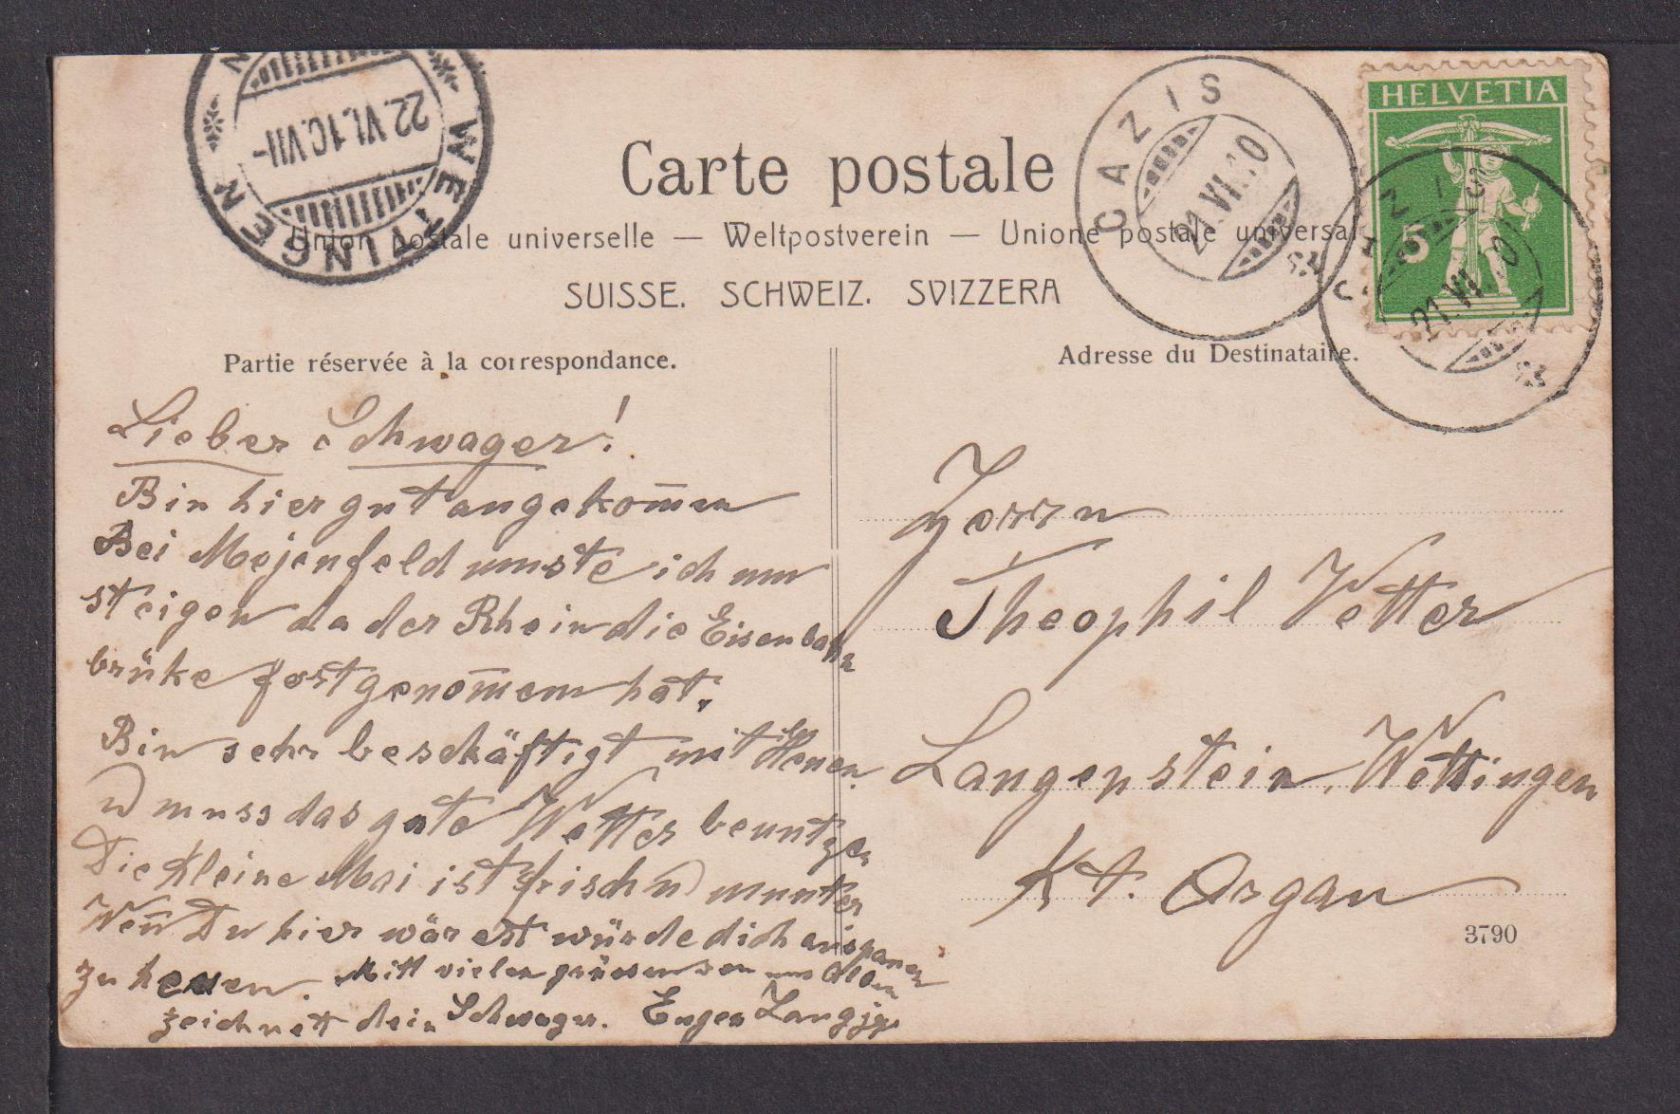 WETTINGEN
22.VI.10.VII-
CAZIS
21.VI.10
HELVETIA
5
CAZIS
21.VI.10
Carte postale
Union postale universelle — Weltpostverein — Unione postale universale
SUISSE. SCHWEIZ. SVIZZERA
Partie réservée à la correspondance.
Adresse du Destinataire.
Lieber Schwager!
Bin hier gut angekom̅en
Bei Mejenfeld umste ich um
steigen da der Rhein die Eisenbahn
brüke fortgenom̅em hat.
Bin sehr beschäftigt mit Heuen.
u muss das gute Wetter beuntzen
Die kleine Mai ist frisch u munter
Wen̅ Du hier wärest würde dich auspanen
zu heuen. Mitt vielen grüssen
zeichnett dein Schwager. Eugen
Herrn
Theophil Vetter
Langenstein, Wettingen
Kt. Argau
3790